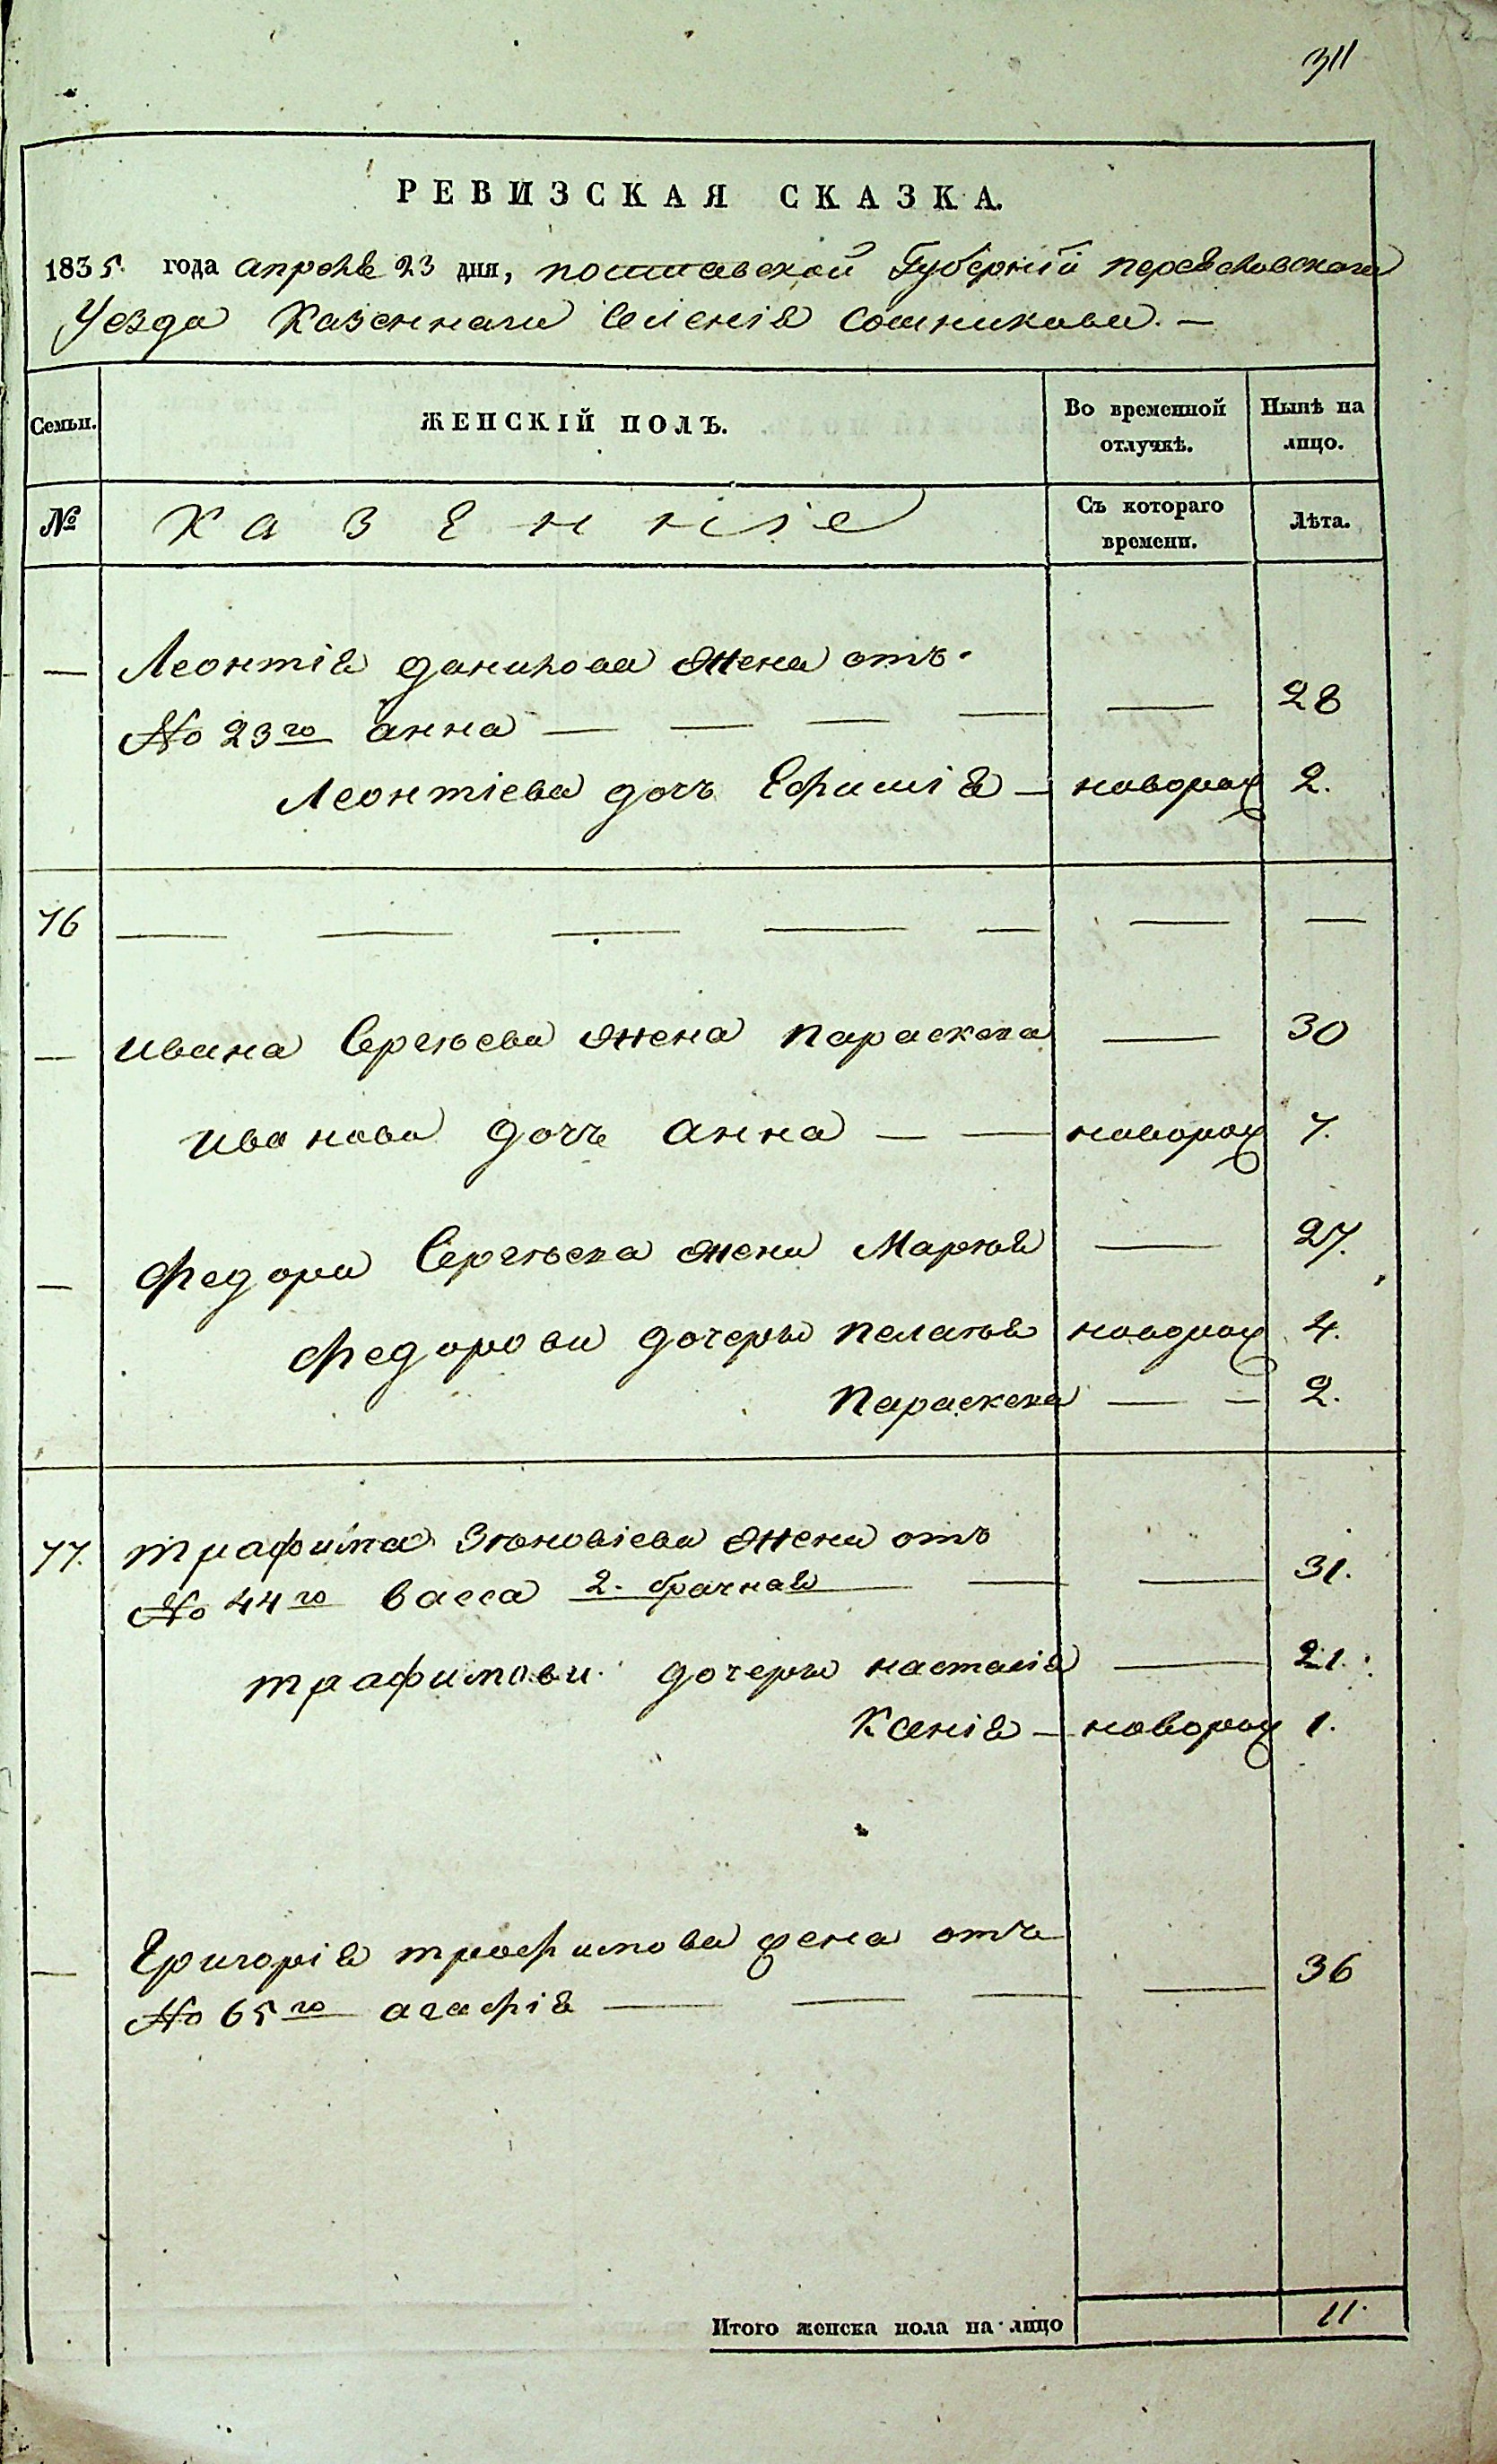 311
РЕВИЗСКАЯ СКАЗКА.
1835. года апреля 23 дня, полтавской Губерніи переяславскаго
Уезда Казеннаго Селенія Сошникова. —
Семьи. ЖЕНСКІЙ ПОЛЪ. Во временной отлучкѣ. Нынѣ на лицо.
№ Казенніе Съ котораго времени. Лѣта.
— Леонтія данилова жена отъ
№ 23го анна — — — — — 28
Леонтіева дочъ Ефимія — новорож 2.
76 — — — — — — —
— ивана Сергѣева жена параскева — 30
иванова дочъ анна — — новорож 7.
— федора Сергѣева жена Маріья — 27.
федорови дочеры пелагѣя новорож 4.
параскева — — 2.
77. трафима Зѣновіева жена отъ
№ 44го васса 2. брачная — — 31.
трафимови дочеры насталія — 21.
Ксенія — новорож 1.
— Григорія трофимова жена отъ
№ 65го агафія — — — — 36
Итого женска пола на лицо 11.